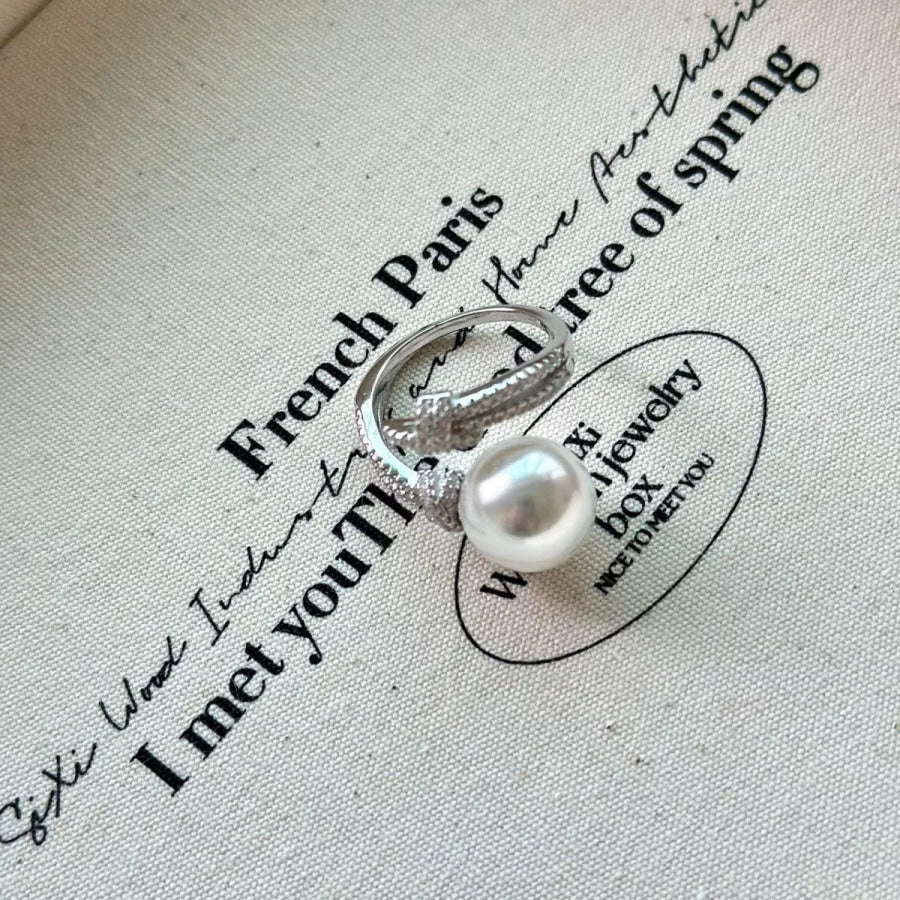 French Paris
QiXi Wood Industry and Home Aesthetic
I met youThe tree of spring
jewelry
box
NICE TO MEET YOU